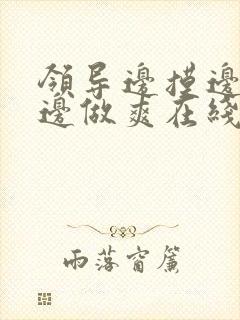 領导邊摸邊
邊做爽在綫
雨落窗簾